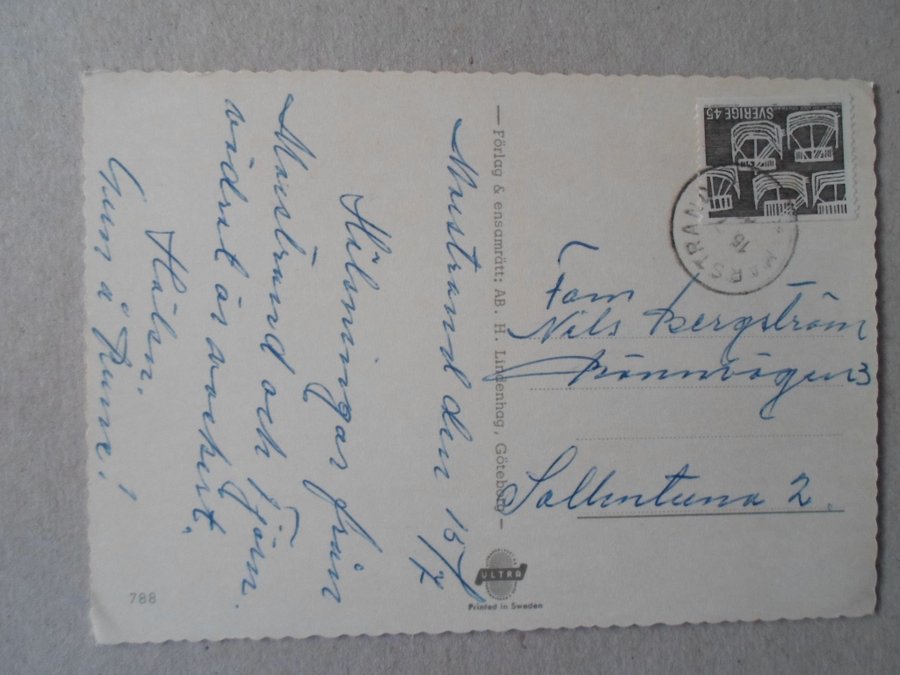 Marstrand den 15/7
Hälsningar från
Marstrand och Tjörn.
vädret är vackert.
Hälsn.
Gun å Rune!
— Förlag & ensamrätt: AB. H. Lindenhag, Göteborg —
SVERIGE 45
MARSTRAND
15
Fam
Nils Bergström
3
Sollentuna 2.
ULTRA
Printed in Sweden
788